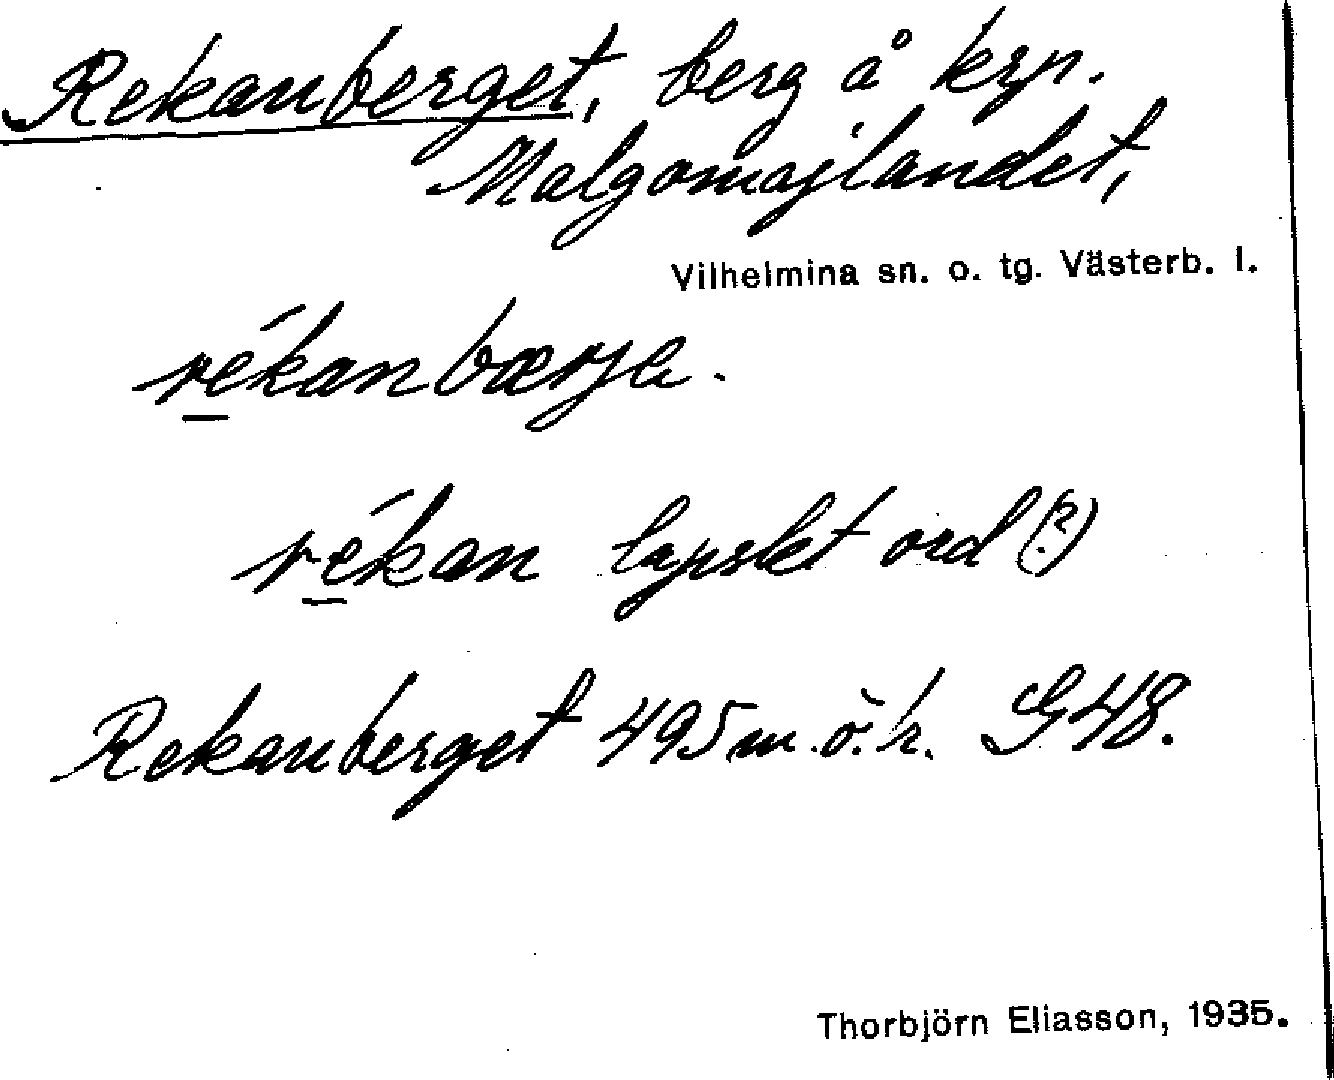 Rekanberget, berg å krp.
Malgomajlandet,
Vilhelmina sn. o. tg. Västerb. l.
rékanbærje.
rékan lapskt ord (?)
Rekanberget 495 m. ö. h. G48.
Thorbjörn Eliasson, 1935.